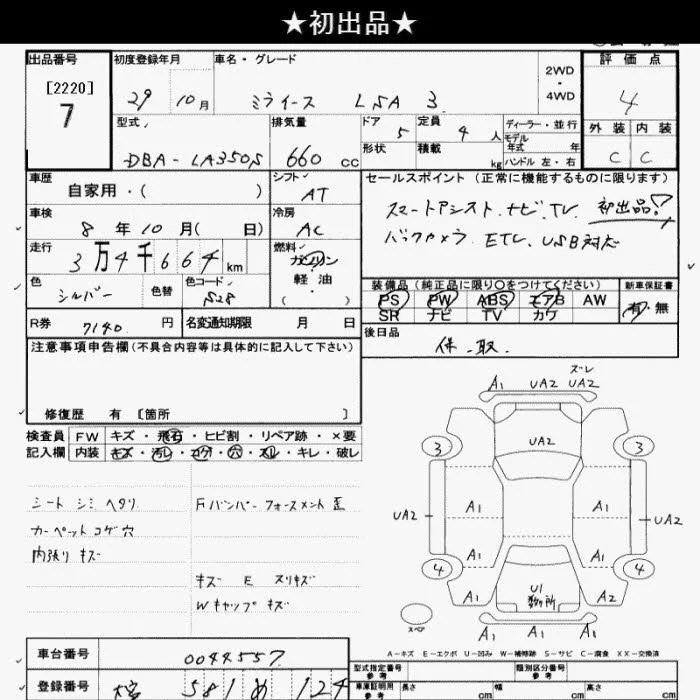 ★初出品★
出品番号
[2220]
7
初度登録年月
29 10月
車名・グレード
ミライース LSA 3
2WD
・
4WD
評価点
4
外装 内装
C C
型式
DBA-LA350S
排気量
660 cc
ドア 5
形状
定員 4 人
積載 kg
ディーラー・並行
モデル
年式 年
ハンドル 左・右
車歴
自家用・( )
シフト
AT
車検
8 年 10 月( 日)
冷房
AC
走行
3万4千664 km
燃料
ガソリン
軽油
( )
色
シルバー
色替
色コード
S28
R券 7140 円
名変通知期限 月 日
セールスポイント(正常に機能するものに限ります)
スマートアシスト.ナビ.TV. 初出品!
バックカメラ. ETC. USB対応
装備品(純正品に限り○をつけてください)
PS PW ABS エアB AW
SR ナビ TV カワ
新車保証書
有・無
後日品
保.取.
注意事項申告欄(不具合内容等は具体的に記入して下さい)
修復歴 有 [箇所 ]
検査員
記入欄
FW キズ・飛石・ヒビ割・リペア跡・×要
内装 キズ・汚レ・コゲ・穴・スレ・キレ・破レ
シート シミ ヘタリ
カーペットコゲ穴
内張り キズ
Fバンパーフォースメント歪
キズ E スリキズ
Wキャップ キズ
ズレ
A1 UA2 UA2
UA2
3 3
UA2 A1 A1 UA2
A1 A1
4 4
A1 U1 A2
A1 A1 A1
スペア
A-キズ E-エクボ U-凹み W-補修跡 S-サビ C-腐食 XX-交換済
車台番号 0044557
登録番号 581 め 124
型式指定番号
参考
類別区分番号
参考
車庫証明用
参考
長さ cm 幅 cm 高さ cm